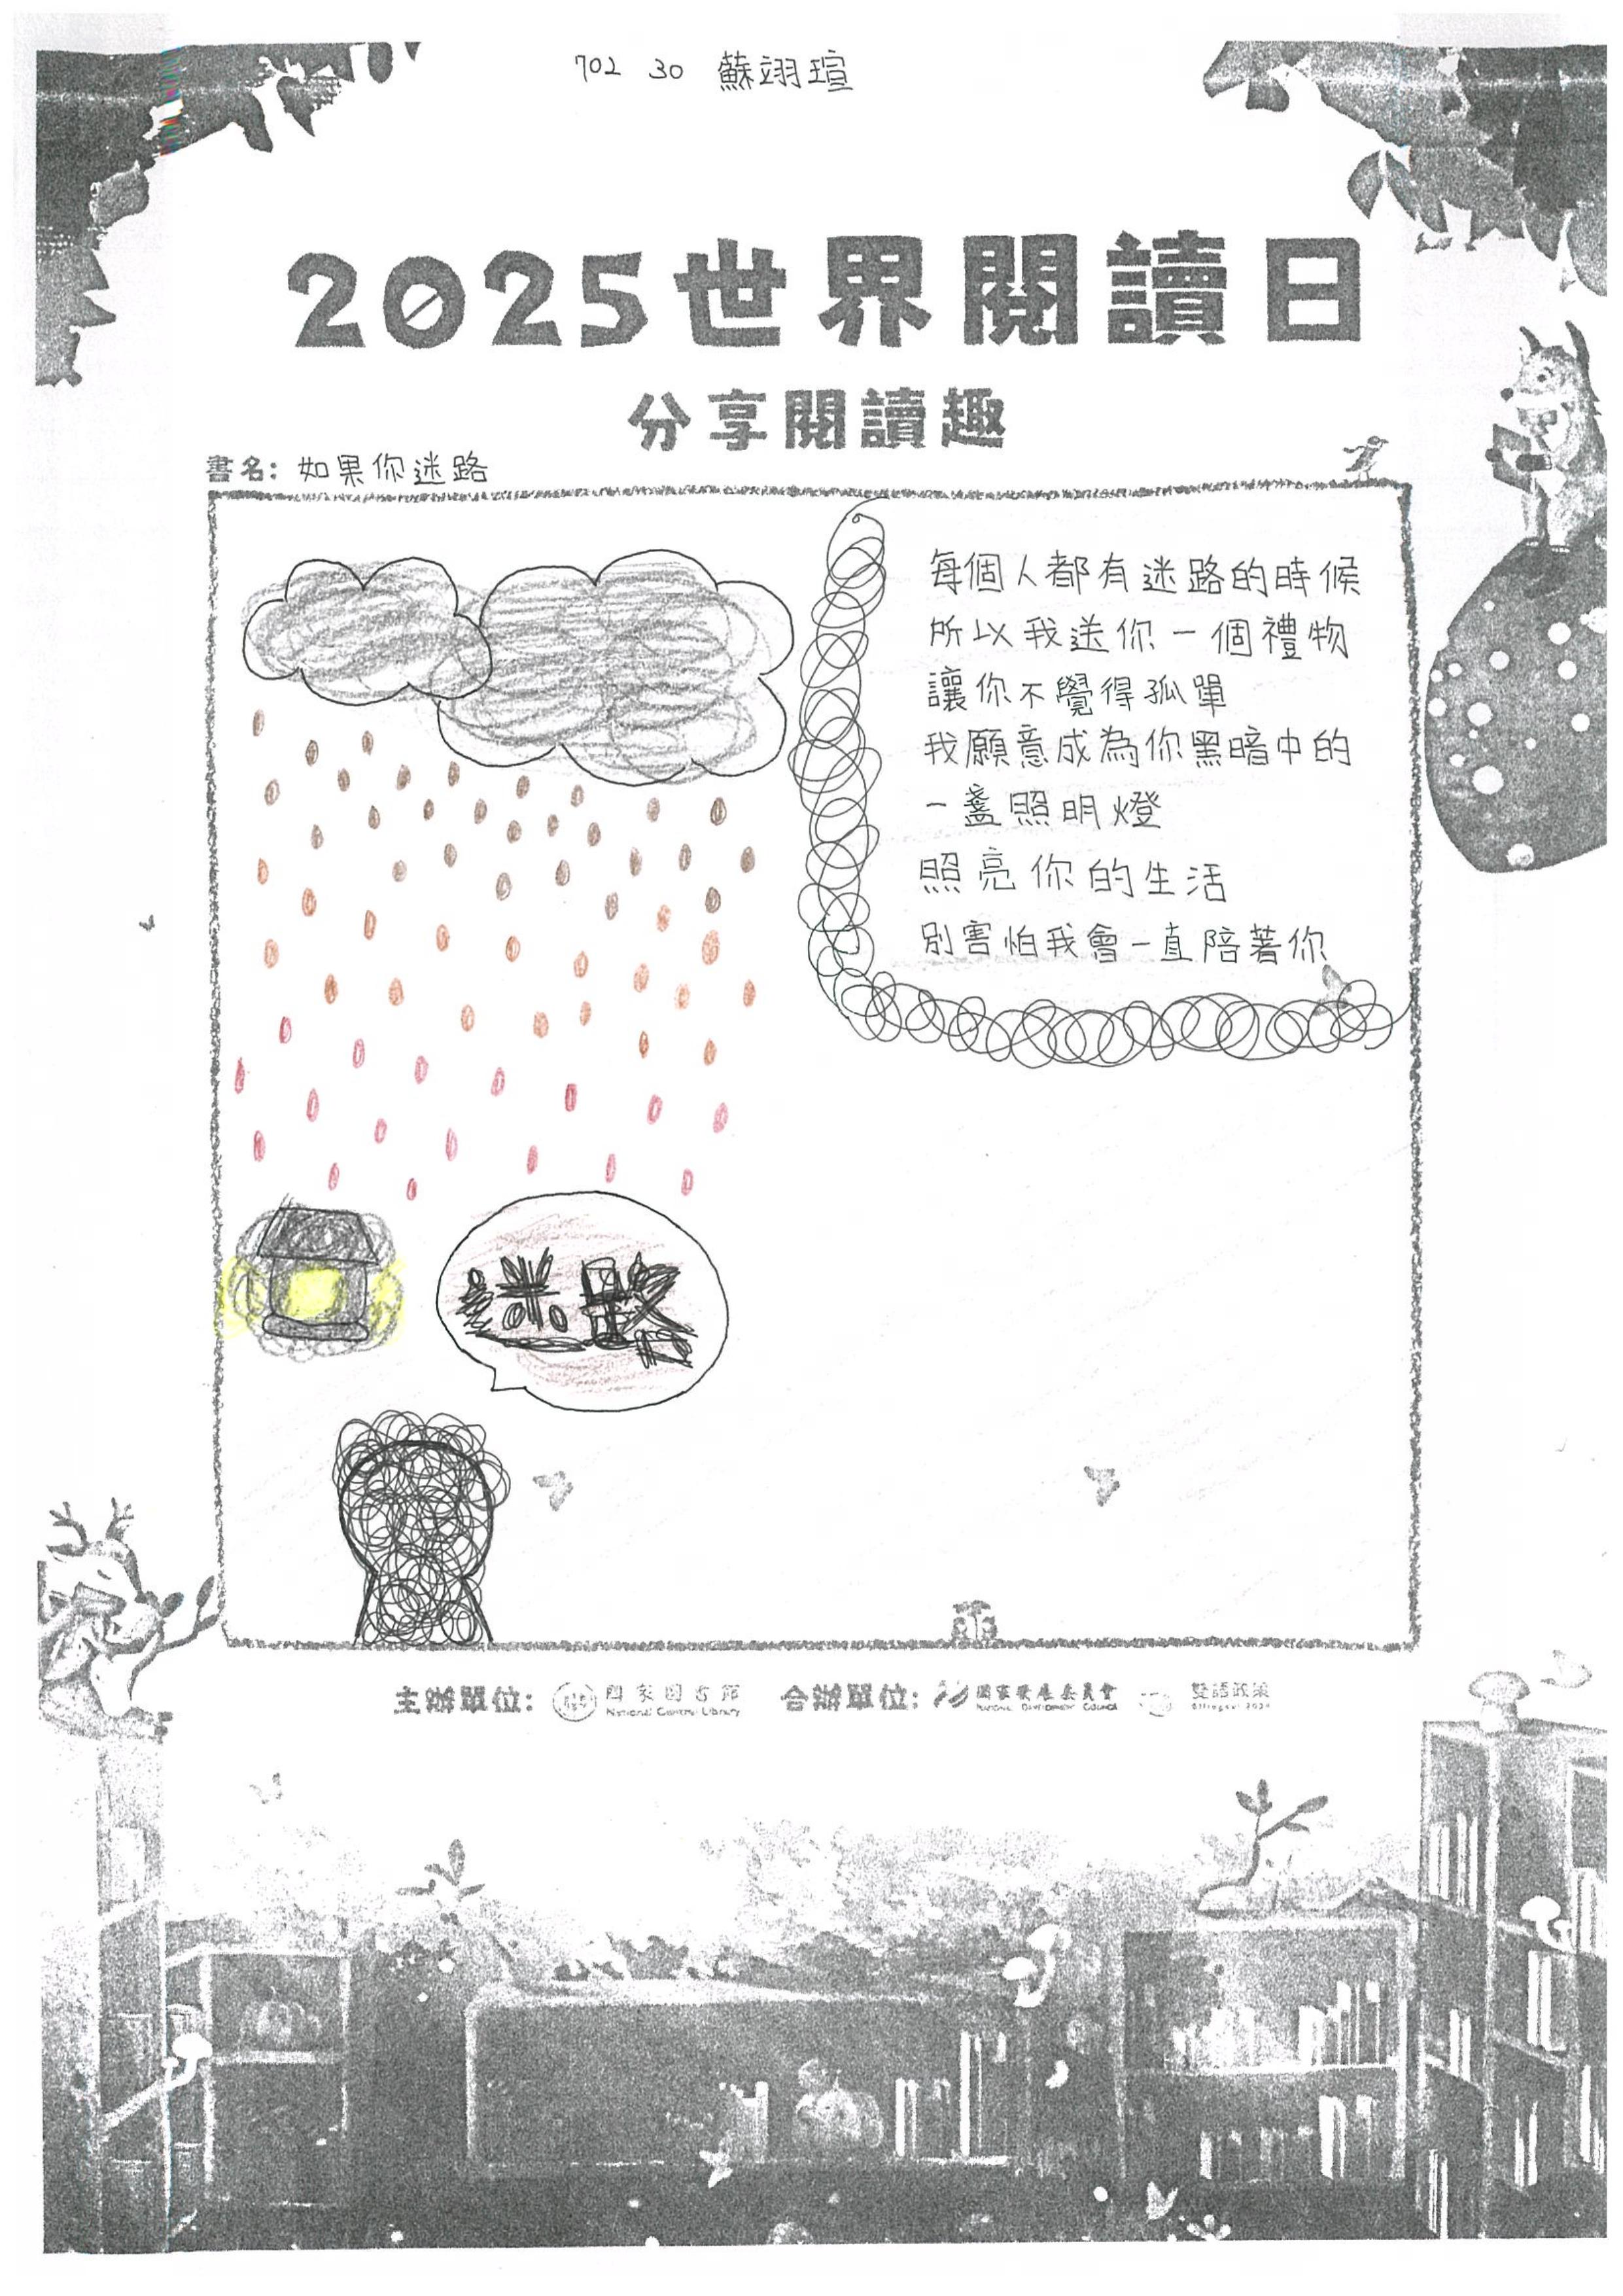 702 30 蘇翊瑄
2025世界閱讀日
分享閱讀趣
書名: 如果你迷路
每個人都有迷路的時候
所以我送你一個禮物
讓你不覺得孤單
我願意成為你黑暗中的
一盞照明燈
照亮你的生活
別害怕我會一直陪著你
迷路
主辦單位: 國家圖書館 National Central Library 合辦單位: 國家發展委員會 National Development Council 雙語政策 Bilingual 2030